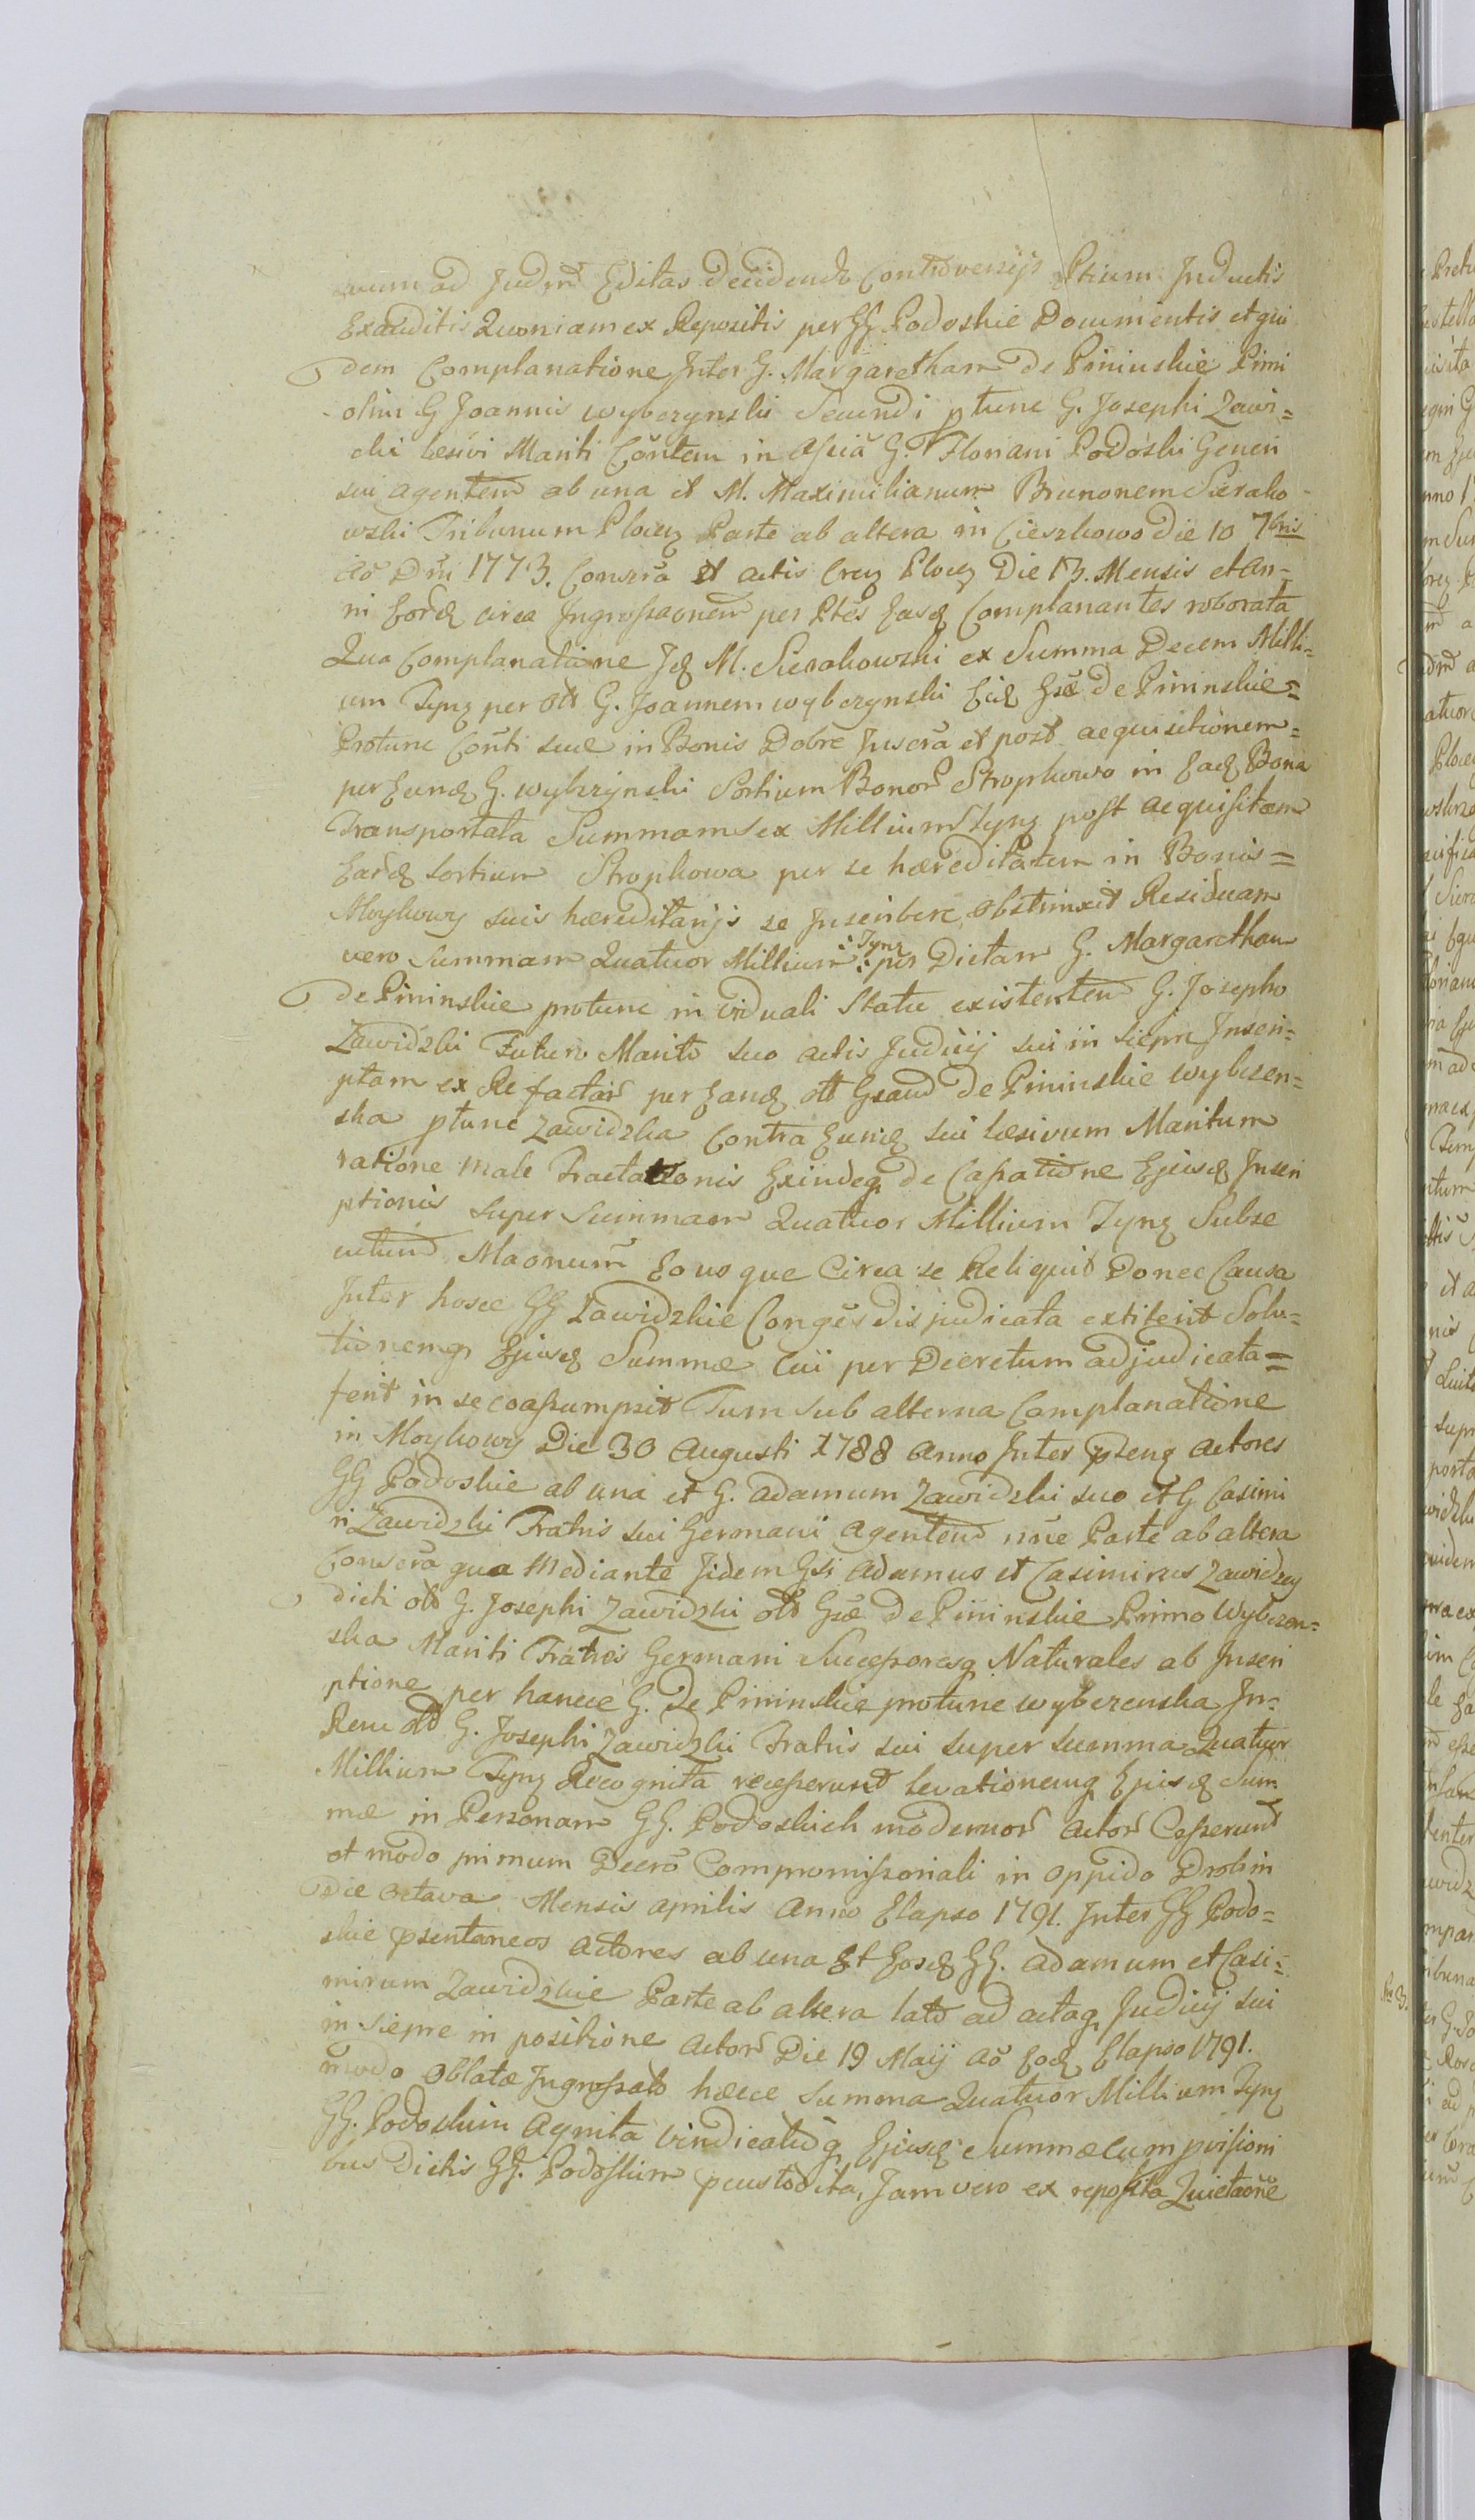 ad Judm̃ Editas decidend Controversijs Ptium Inductis
Exauditis Quoniam ex Repositis per GG. Podoskie Documentis et qui
dem Complanatione Inter G. Margaretham de Pininskie Primi
olim G Joannis wyberzynski Secundi ptunc G. Josephi Zawi=
chi lesivi Mariti Cõntem in Aßiã G. Floriani Podoski Generi
sui agentem ab una et M. Maximilianum Brunonem Sierako-
wski Tribunum Plocz Parte ab altera in Cieszkowo Die 10 7bris
Aõ Dñi 1773. Conscrã et actis Crez Plocz Die 13. Mensis et An=
ni Eord circa Ingroßaonem per Ptes Easd Complanantes roborata
Qua Complanatione Id M. Sierakowski ex Summa Decem Milli=
um Fpnz per olt G. Joannem wyberzynski Eid Gsæ De Pininskie=
Protunc Cõnti suæ in Bonis Dobre Inscrã et post aequisitionem=
per Eund G. wybrzynski Sortium Bonor̃ Stropkowo in Ead Bona
Transportata Summam sex Millium Fpnz post aequisitam
Eard sortium Stropkowa per se hæreditatem in Bonis=
Moykowy suis hæreditarijs se Inscribere obstrinxit Residuam
vero Summam Quatuor Millium :Fpnz: per Dictam G. Margaretham
de Pininskie protunc in viduali Statu existentem G. Josepho
Zawidzki Futuro Marito suo actis Judicij sui in Siepre Inscri=
ptam ex Re factar̃ per Eand olt Gsam De Pininskie wybczen=
ska ptunc Zawidzka Contra Eund sui læsivum Maritum
ratione male Tractationis Exindeq de Caßatione Ejusd Inscri
ptionis super Summam Quatuor Millium Fpnz Subse
cutum Maonum Eo usque Circa se Reliquit Donec Causa
Inter hosce GG Zawidzkie Conges dis judicata extiterit Solu=
tionemq Ejusd Summæ Cui per Decretum adjudicata=
ferit in se coaßumpsit Tum Sub alterna Complanatione
in Moykowy Die 30 Augusti 1788 Anno Inter pteng actores
GG Podoskie ab una et G. Adamum Zawidzki suo et G Casimi
ri Zawidzki Fratris sui Germani Agentem nñe Parte ab altera
Conscrã qua Mediante Iidem Gsi Adamus et Casimirus Zawidzcy
dicti olt G. Josephi Zawidzki olt Gsæ de Pininskie Primo Wybczen=
ska Mariti Fratris Germani Succeßoresq Naturales ab Inscri
ptione per hancce G. De Pininskie protunc wyberzenska In=
Rem olt G. Josephi Zawidzki Fratris sui super summa Quatuor
Millium Fpnz Recognita receßerunt levationemq Ejusd Sum
mæ in Personam GG. Podoskich modernor̃ Actor̃ Ceßerunt
et modo primum Decrõ Compromißoriali in oppido Drobin
Die Octava Mensis Aprilis Anno Elapso 1791. Inter GG Podo=
skie psentaneos Actores ab una Et Eosd GG. Adamum et Casi=
mirum Zawidzkie Parte ab altera lato ad actaq Judicij sui
in Siepre in positione Actor̃ Die 19 Maij Aõ Eod Elapso 1791.
modo Oblatæ Ingroßato hæcce Summa Quatuor Millium Fpnz
GG. Podoskim Agnita Vindicatioq Ejusd Summæ cum pvisioni
bus Dictis GG. Podoskim pcustodita, Jam vero ex reposita Quietaoñe